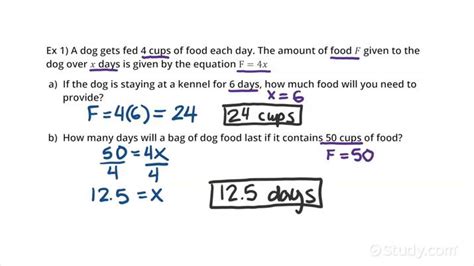 Ex 1) A dog gets fed 4 cups of food each day. The amount of food F given to the
dog over x days is given by the equation F = 4x
a) If the dog is staying at a kennel for 6 days, how much food will you need to
provide?
x = 6
F = 4(6) = 24
24 cups
b) How many days will a bag of dog food last if it contains 50 cups of food?
F = 50
50 = 4x
4 4
12.5 = x
12.5 days
Study.com